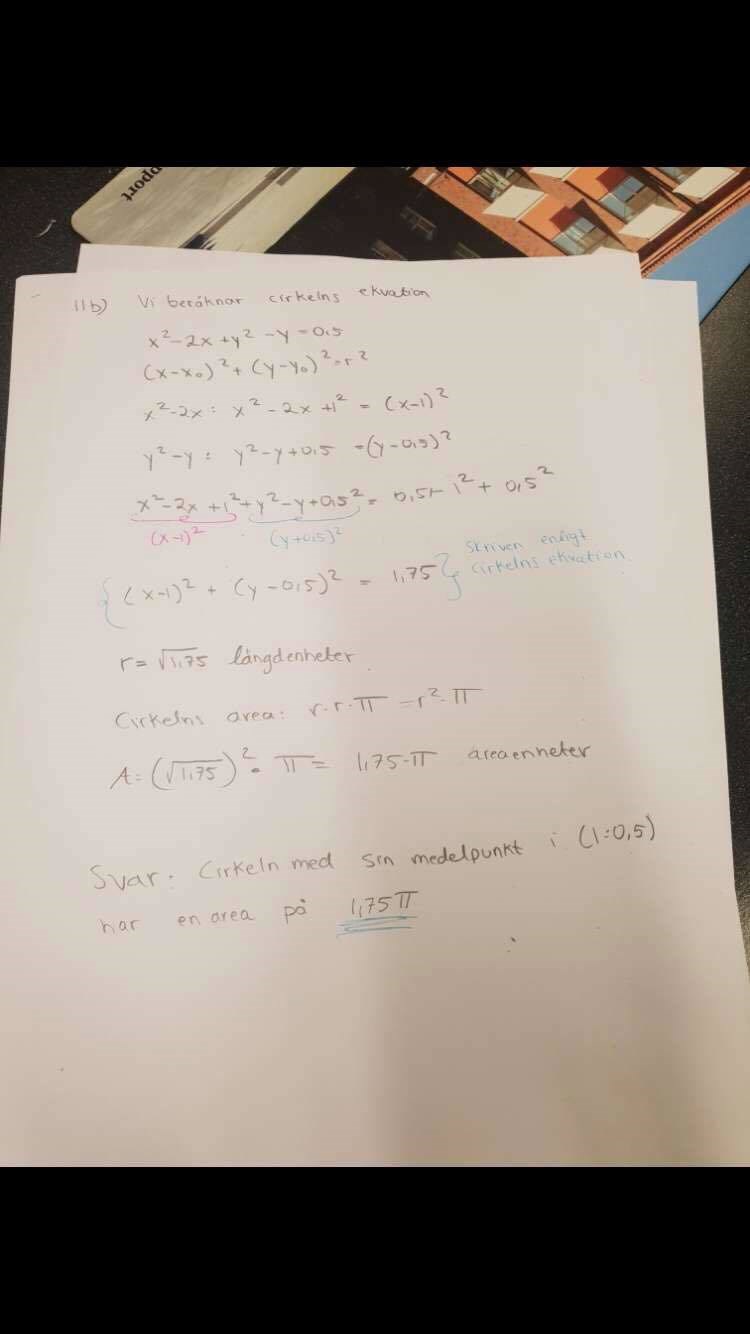 pport
11b) Vi beräknar cirkelns ekvation
x²-2x+y²-y=0,5
(x-x₀)²+(y-y₀)²=r²
x²-2x: x²-2x+1² = (x-1)²
y²-y: y²-y+0,5 =(y-0,5)²
x²-2x+1²+y²-y+0,5²= 0,5+1²+0,5²
(x-1)² (y+0,5)²
{(x-1)² + (y-0,5)² = 1,75} Skriven enligt
cirkelns ekvation
r= √1,75 längdenheter
Cirkelns area: r·r·π =r²·π
A=(√1,75)²·π= 1,75·π areaenheter
Svar: Cirkeln med sin medelpunkt i (1:0,5)
har en area på 1,75π